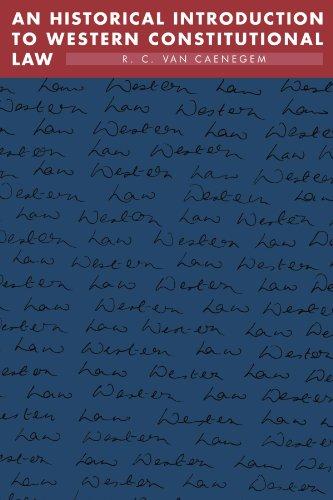 AN HISTORICAL INTRODUCTION
TO WESTERN CONSTITUTIONAL
LAW R. C. VAN CAENEGEM
Law Western
Western Law Western
Law Western Law
Western Law Western
Law Western Law
Western Law Western
Law Western Law Western
Western Law Western Law
Law Western Law Western
Western Law Western Law
Law Western Law Western
Western Law Western Law
Law Western Law Western
Western Law Western Law
Law Western Law Western
Western Law Western Law
Law Western Law Western
Western Law Western Law
Law Western Law Western